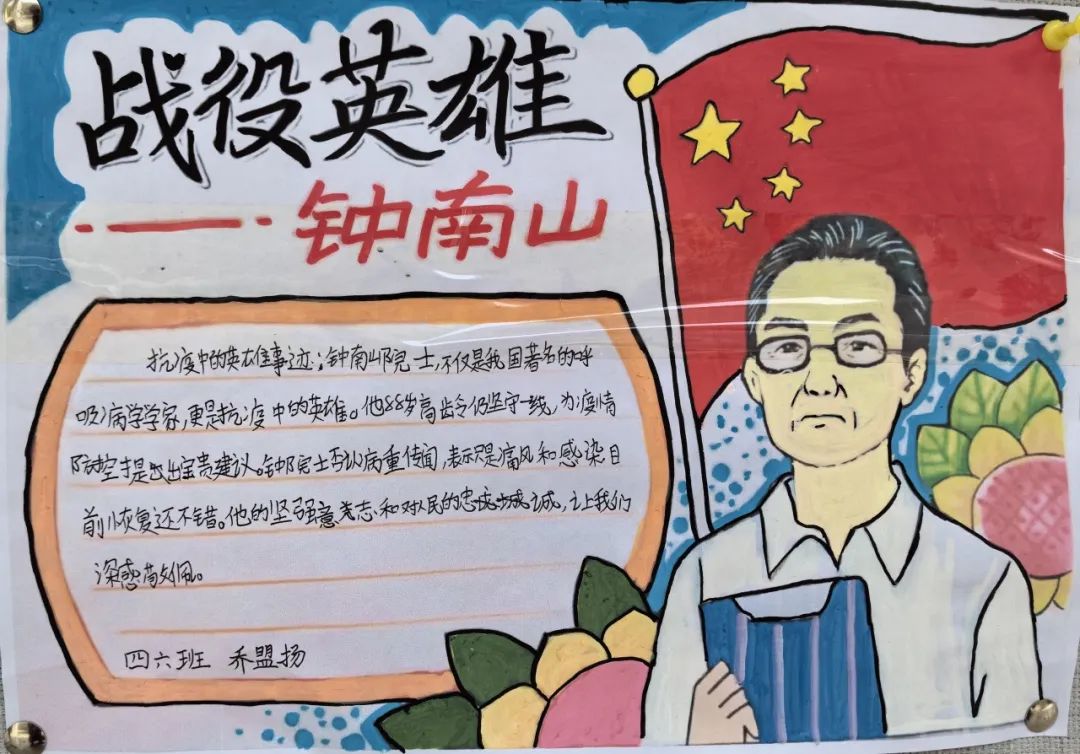 战役英雄
——钟南山
抗疫中的英雄事迹:钟南山院士,不仅是我国著名的呼
吸病学学家,更是抗疫中的英雄。他88岁高龄仍坚守一线,为疫情
防控提出宝贵建议。钟院士否认病重传闻,表示只是痛风和感染目
前恢复还不错。他的坚强意志和对人民的忠诚,让我们
深感敬佩。
四六班 乔盟扬